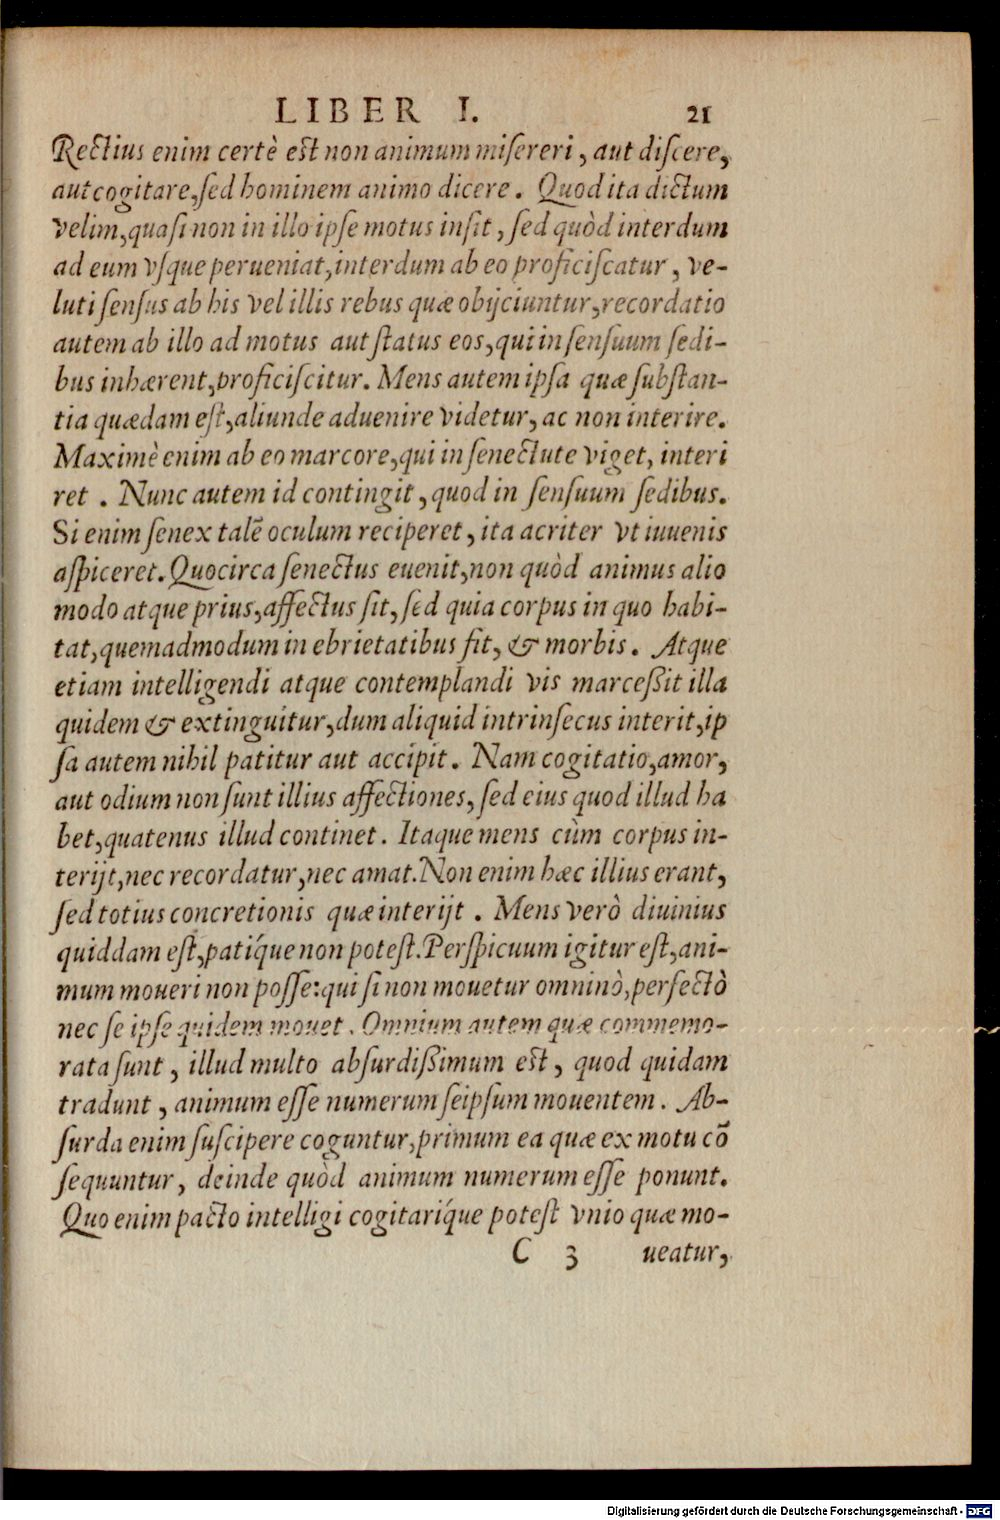 LIBER I. 21
Rectius enim certè est non animum misereri, aut discere,
aut cogitare, sed hominem animo dicere. Quod ita dictum
velim, quasi non in illo ipse motus insit, sed quòd interdum
ad eum vsque perueniat, interdum ab eo proficiscatur, ve-
luti sensus ab his vel illis rebus quæ obijciuntur, recordatio
autem ab illo ad motus aut status eos, qui in sensuum sedi-
bus inhærent, proficiscitur. Mens autem ipsa quæ substan-
tia quædam est, aliunde aduenire videtur, ac non interire.
Maximè enim ab eo marcore, qui in senectute viget, interi
ret. Nunc autem id contingit, quod in sensuum sedibus.
Si enim senex talẽ oculum reciperet, ita acriter vt iuuenis
aspiceret. Quocirca senectus euenit, non quòd animus alio
modo atque prius, affectus sit, sed quia corpus in quo habi-
tat, quemadmodum in ebrietatibus fit, & morbis. Atque
etiam intelligendi atque contemplandi vis marceßit illa
quidem & extinguitur, dum aliquid intrinsecus interit, ip
sa autem nihil patitur aut accipit. Nam cogitatio, amor,
aut odium non sunt illius affectiones, sed eius quod illud ha
bet, quatenus illud continet. Itaque mens cùm corpus in-
terijt, nec recordatur, nec amat. Non enim hæc illius erant,
sed totius concretionis quæ interijt. Mens verò diuinius
quiddam est, patíque non potest. Perspicuum igitur est, ani-
mum moueri non posse: qui si non mouetur omninò, perfectò
nec se ipse quidem mouet. Omnium autem quæ commemo-
rata sunt, illud multo absurdißimum est, quod quidam
tradunt, animum esse numerum seipsum mouentem. Ab-
surda enim suscipere coguntur, primum ea quæ ex motu cõ
sequuntur, deinde quòd animum numerum esse ponunt.
Quo enim pacto intelligi cogitaríque potest vnio quæ mo-
C 3 ueatur,
Digitalisierung gefördert durch die Deutsche Forschungsgemeinschaft - DFG